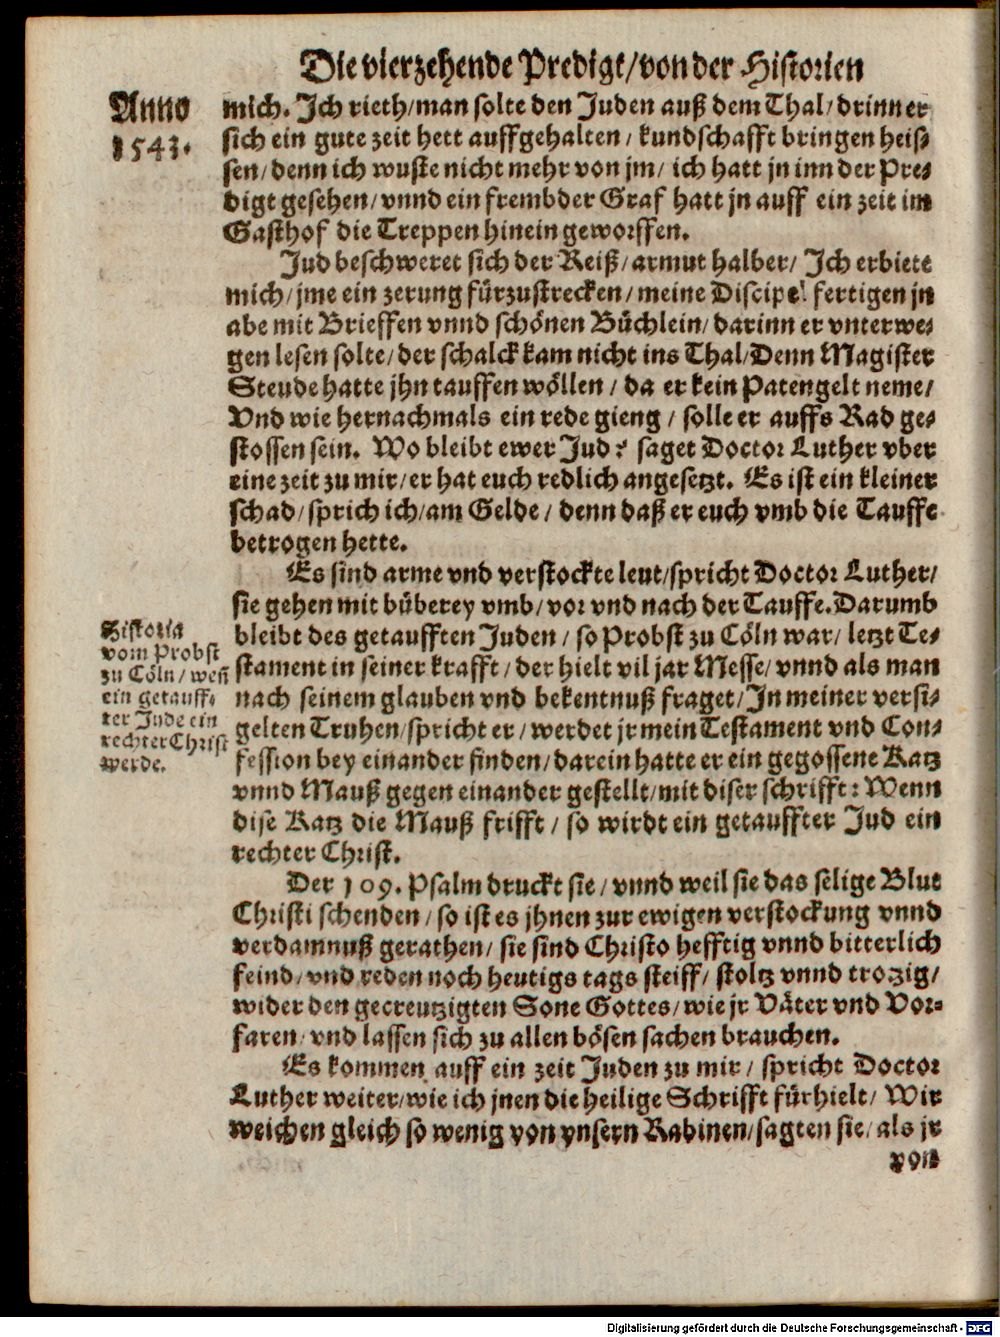 Die vierzehende Predigt/von der Historien
Anno
1543.
mich. Ich rieth/man solte den Juden auß dem Thal/drinn er
sich ein gute zeit hett auffgehalten/kundschafft bringen heis-
sen/denn ich wuste nicht mehr von jm/ich hatt jn inn der Pre-
digt gesehen/vnnd ein frembder Graf hatt jn auff ein zeit im
Gasthof die Treppen hinein geworffen.
Jud beschweret sich der Reiß/armut halber/Ich erbiete
mich/jme ein zerung fürzustrecken/meine Discipel fertigen jn
abe mit Brieffen vnnd schönen Büchlein/darinn er vnterwe-
gen lesen solte/der schalck kam nicht ins Thal/Denn Magister
Steude hatte jhn tauffen wöllen/da er kein Patengelt neme/
Vnd wie hernachmals ein rede gieng/solle er auffs Rad ge-
stossen sein. Wo bleibt ewer Jud? saget Doctor Luther vber
eine zeit zu mir/er hat euch redlich angesetzt. Es ist ein kleiner
schad/sprich ich/am Gelde/denn daß er euch vmb die Tauffe
betrogen hette.
Es sind arme vnd verstockte leut/spricht Doctor Luther/
sie gehen mit büberey vmb/vor vnd nach der Tauffe. Darumb
bleibt des getaufften Juden/so Probst zu Cöln war/letzt Te-
stament in seiner krafft/der hielt vil jar Messe/vnnd als man
nach seinem glauben vnd bekentnuß fraget/In meiner versi-
gelten Truhen/spricht er/werdet jr mein Testament vnd Con-
fession bey einander finden/darein hatte er ein gegossene Katz
vnnd Mauß gegen einander gestellt/mit diser schrifft: Wenn
dise Katz die Mauß frisst/so wirdt ein getauffter Jud ein
rechter Christ.
Historia
vom Probst
zu Cöln/weñ
ein getauff-
ter Jude ein
rechter Christ
werde.
Der 109. Psalm druckt sie/vnnd weil sie das selige Blut
Christi schenden/so ist es jhnen zur ewigen verstockung vnnd
verdamnuß gerathen/sie sind Christo hefftig vnnd bitterlich
feind/vnd reden noch heutigs tags steiff/stoltz vnnd trozig/
wider den gecreutzigten Sone Gottes/wie jr Väter vnd Vor-
faren/vnd lassen sich zu allen bösen sachen brauchen.
Es kommen auff ein zeit Juden zu mir/spricht Doctor
Luther weiter/wie ich jnen die heilige Schrifft fürhielt/Wir
weichen gleich so wenig von vnsern Rabinen/sagten sie/als jr
von
Digitalisierung gefördert durch die Deutsche Forschungsgemeinschaft - DFG